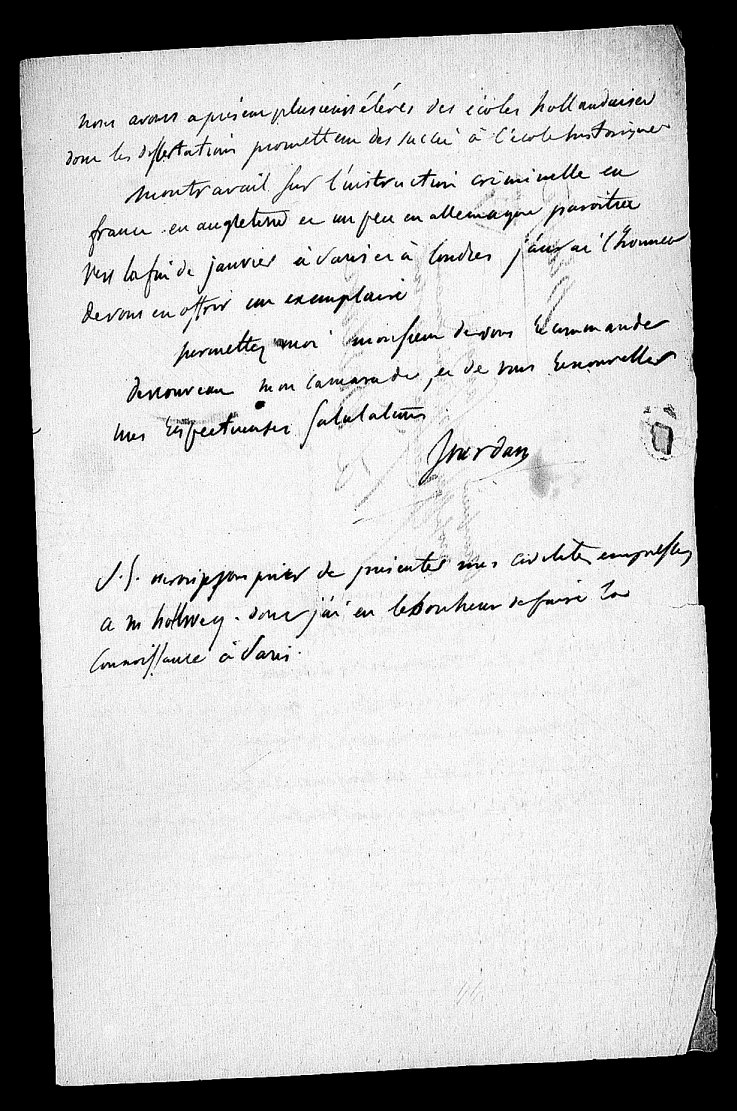 nous avons a présent plusieurs élèves des écoles hollandaises
dont les dissertations promettent des succès à l'école historique
mon travail sur l'instruction criminelle en
france en angleterre et un peu en allemagne paroitra
vers la fin de janvier à Paris et à londres j'aurai l'honneur
de vous en offrir un exemplaire
permettez moi monsieur de vous recommander
de nouveau mon camarade, et de vous renouveller
mes respectueuses salutations
Jourdan
P.S. prier de présenter mes civilités empressées
a m hollweg. dont j'ai eu le bonheur de faire la
connoissance à Paris.